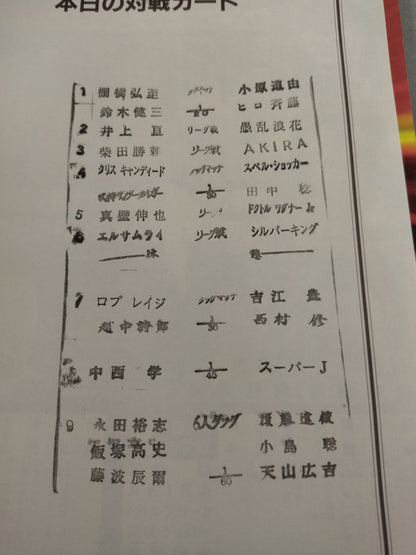 本日の対戦カード
1 棚橋弘至 タッグマッチ 小原道由
鈴木健三 1/20 ヒロ斉藤
2 井上亘 リーグ戦 愚乱浪花
3 柴田勝頼 リーグ戦 AKIRA
4 クリス キャンディード タッグマッチ スペル・ショッカー
1/30 田中稔
5 真壁伸也 リーグ ドクトル ワグナーJr
6 エルサムライ リーグ戦 シルバーキング
休 憩
7 ロブ レイジ タッグマッチ 吉江豊
越中詩郎 1/30 西村修
中西学 1/45 スーパーJ
9 永田裕志 6人タッグ 後藤達俊
飯塚高史 小島聡
藤波辰爾 1/60 天山広吉